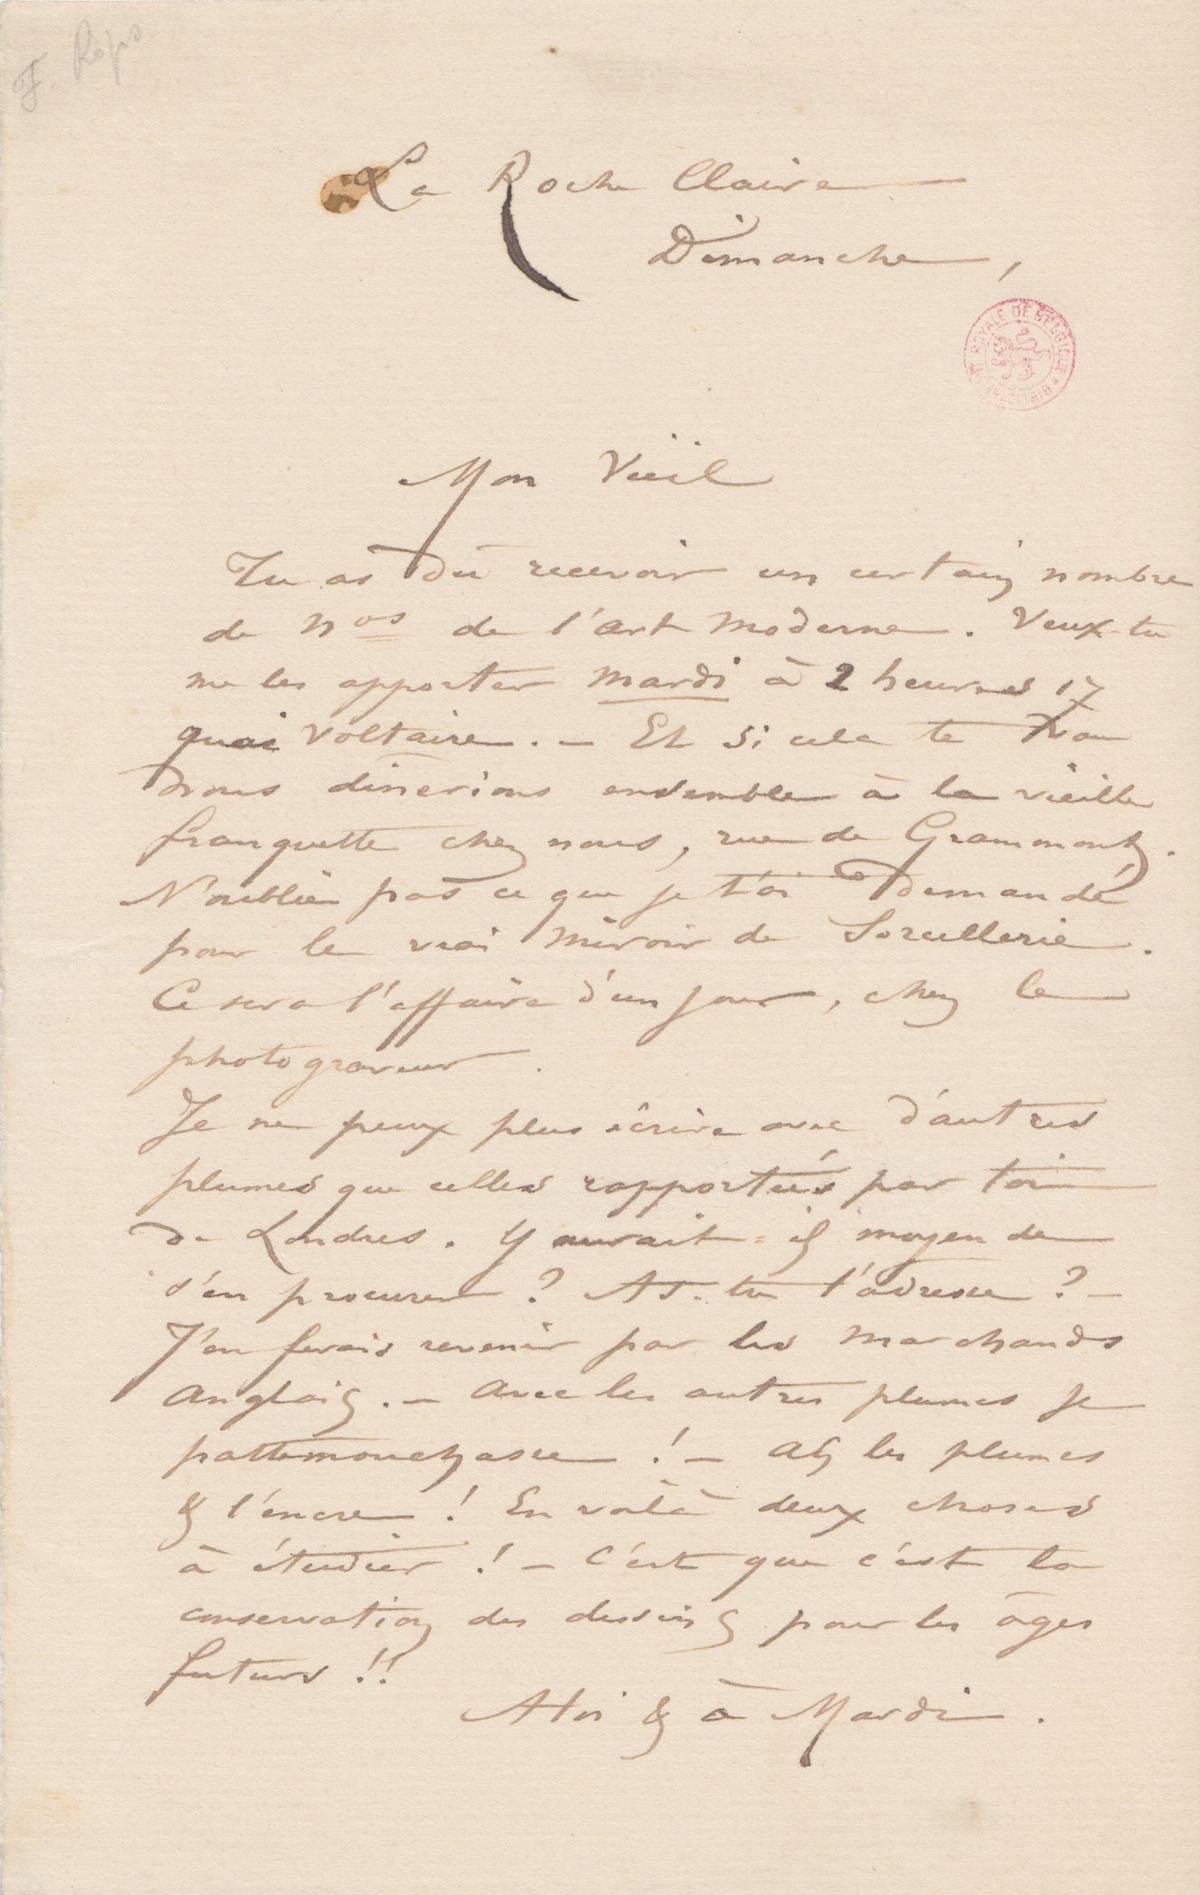 F. Rops
La Roche Claire
Dimanche,
ROYALE DE BELGIQUE
Mon Vieil
Tu as dû recevoir un certain nombre
de nos de l'Art Moderne. Veux-tu
me les apporter Mardi à 2 heures 17
quai Voltaire. — Et si cela te va
nous dinerions ensemble à la vieille
franquette chez nous, rue de Grammont.
N'oublie pas ce que je t'ai demandé
pour le vrai Miroir de Sorcellerie.
Ce sera l'affaire d'un jour, chez le
photograveur.
Je ne peux plus écrire avec d'autres
plumes que celles rapportées par toi
de Londres. Y aurait-il moyen de
s'en procurer? As-tu l'adresse? —
J'en ferais revenir par les Marchands
Anglais. — Avec les autres plumes je
pattemouchasse! — Ah les plumes
& l'encre! En voilà deux choses
à étudier! — C'est que c'est la
conservation des dessins pour les âges
futurs!!
A toi & à Mardi.